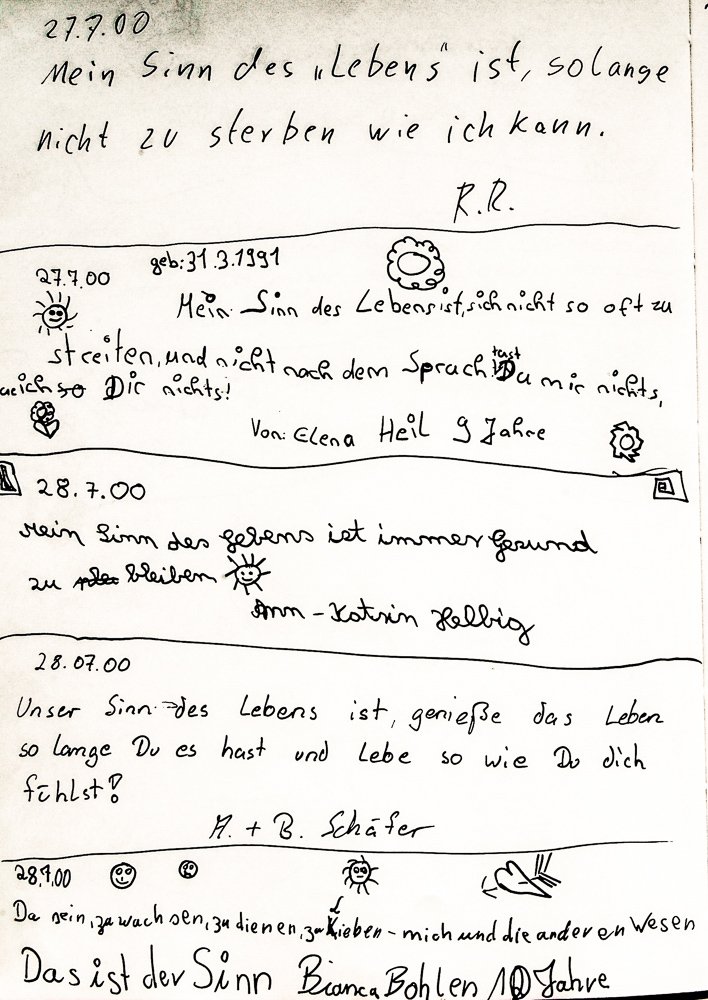 27.7.00
Mein Sinn des „Lebens" ist, solange
nicht zu sterben wie ich kann.
R.R.
geb: 31.3.1991
27.7.00
Mein Sinn des Lebens ist, sich nicht so oft zu
streiten, und nicht nach dem Spruch: tust Du mir nichts,
ich so Dir nichts!
Von: Elena Heil 9 Jahre
28.7.00
Mein Sinn des Lebens ist immer Gesund
zu bleiben
Ann-Katrin Helbig
28.07.00
Unser Sinn des Lebens ist, genieße das Leben
so lange Du es hast und Lebe so wie Du dich
fühlst!
A. + B. Schäfer
28.7.00
Da sein, zu wachsen, zu dienen, zu lieben - mich und die anderen Wesen
Das ist der Sinn Bianca Bohlen 10 Jahre